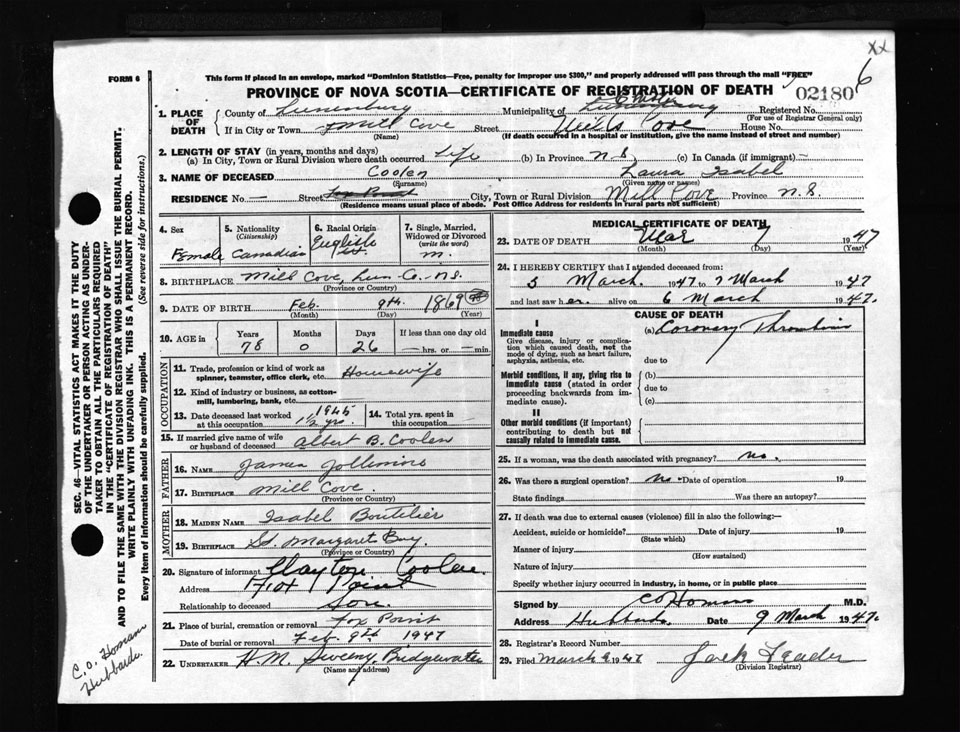 xx
6
FORM 6
This form if placed in an envelope, marked "Dominion Statistics—Free, penalty for improper use $300," and properly addressed will pass through the mail "FREE"
PROVINCE OF NOVA SCOTIA—CERTIFICATE OF REGISTRATION OF DEATH
02180
1. PLACE OF DEATH
County of Lunenburg Municipality of Registered No.
(For use of Registrar General only)
If in City or Town Mill Cove Street Mill Cove House No.
(Name) (If death occurred in a hospital or institution, give the name instead of street and number)
2. LENGTH OF STAY (in years, months and days)
(a) In City, Town or Rural Division where death occurred Life (b) In Province N.S. (c) In Canada (if immigrant) —
3. NAME OF DECEASED Coolen Laura Isabel
(Surname) (Given name or names)
RESIDENCE No. — Street Fox Point City, Town or Rural Division Mill Cove Province N.S.
(Residence means usual place of abode. Post Office Address for residents in rural parts not sufficient)
4. Sex
Female
5. Nationality
(Citizenship)
Canadian
6. Racial Origin
English
7. Single, Married, Widowed or Divorced
(write the word)
m.
8. BIRTHPLACE Mill Cove, Lun. Co. - N.S.
(Province or Country)
9. DATE OF BIRTH Feb. 9th. 1869
(Month) (Day) (Year)
10. AGE in
Years Months Days If less than one day old
78 0 26 — hrs. or — min.
OCCUPATION
11. Trade, profession or kind of work as spinner, teamster, office clerk, etc. Housewife
12. Kind of industry or business, as cotton-mill, lumbering, bank, etc.
13. Date deceased last worked at this occupation 1945 1 1/2 yrs.
14. Total yrs. spent in this occupation
15. If married give name of wife or husband of deceased Albert B. Coolen
FATHER
16. NAME James Jollimore
17. BIRTHPLACE Mill Cove.
(Province or Country)
MOTHER
18. MAIDEN NAME Isabel Boutilier
19. BIRTHPLACE St. Margaret Bay.
(Province or Country)
20. Signature of informant Clayton Coolen.
Address Fox Point
Relationship to deceased Son.
21. Place of burial, cremation or removal Fox Point
Date of burial or removal Feb. 9th 1947
22. UNDERTAKER H.M. Sweeny, Bridgewater
(Name and address)
MEDICAL CERTIFICATE OF DEATH
23. DATE OF DEATH Mar 7 1947
(Month) (Day) (Year)
24. I HEREBY CERTIFY that I attended deceased from:
5 March. 1947 to 7 March 1947
and last saw her. alive on 6 March 1947.
CAUSE OF DEATH
I
Immediate cause
Give disease, injury or complication which caused death, not the mode of dying, such as heart failure, asphyxia, asthenia, etc.
(a) Coronary Thrombosis
due to
Morbid conditions, if any, giving rise to immediate cause (stated in order proceeding backwards from immediate cause).
(b)
due to
(c)
II
Other morbid conditions (if important) contributing to death but not causally related to immediate cause.
25. If a woman, was the death associated with pregnancy? no.
26. Was there a surgical operation? no. Date of operation 19
State findings Was there an autopsy?
27. If death was due to external causes (violence) fill in also the following:—
Accident, suicide or homicide? Date of injury 19
(State which)
Manner of injury
(How sustained)
Nature of injury
Specify whether injury occurred in industry, in home, or in public place
Signed by C O Homans M.D.
Address Hubbards Date 9 March 1947.
28. Registrar's Record Number
29. Filed March 9 1947 Jack Leader
(Division Registrar)
SEC. 46—VITAL STATISTICS ACT MAKES IT THE DUTY
OF THE UNDERTAKER OR PERSON ACTING AS UNDER-
TAKER TO OBTAIN ALL THE PARTICULARS REQUIRED
IN THE "CERTIFICATE OF REGISTRATION OF DEATH"
AND TO FILE THE SAME WITH THE DIVISION REGISTRAR WHO SHALL ISSUE THE BURIAL PERMIT.
WRITE PLAINLY WITH UNFADING INK. THIS IS A PERMANENT RECORD.
Every item of information should be carefully supplied. (See reverse side for instructions.)
C. O. Homans
Hubbards.